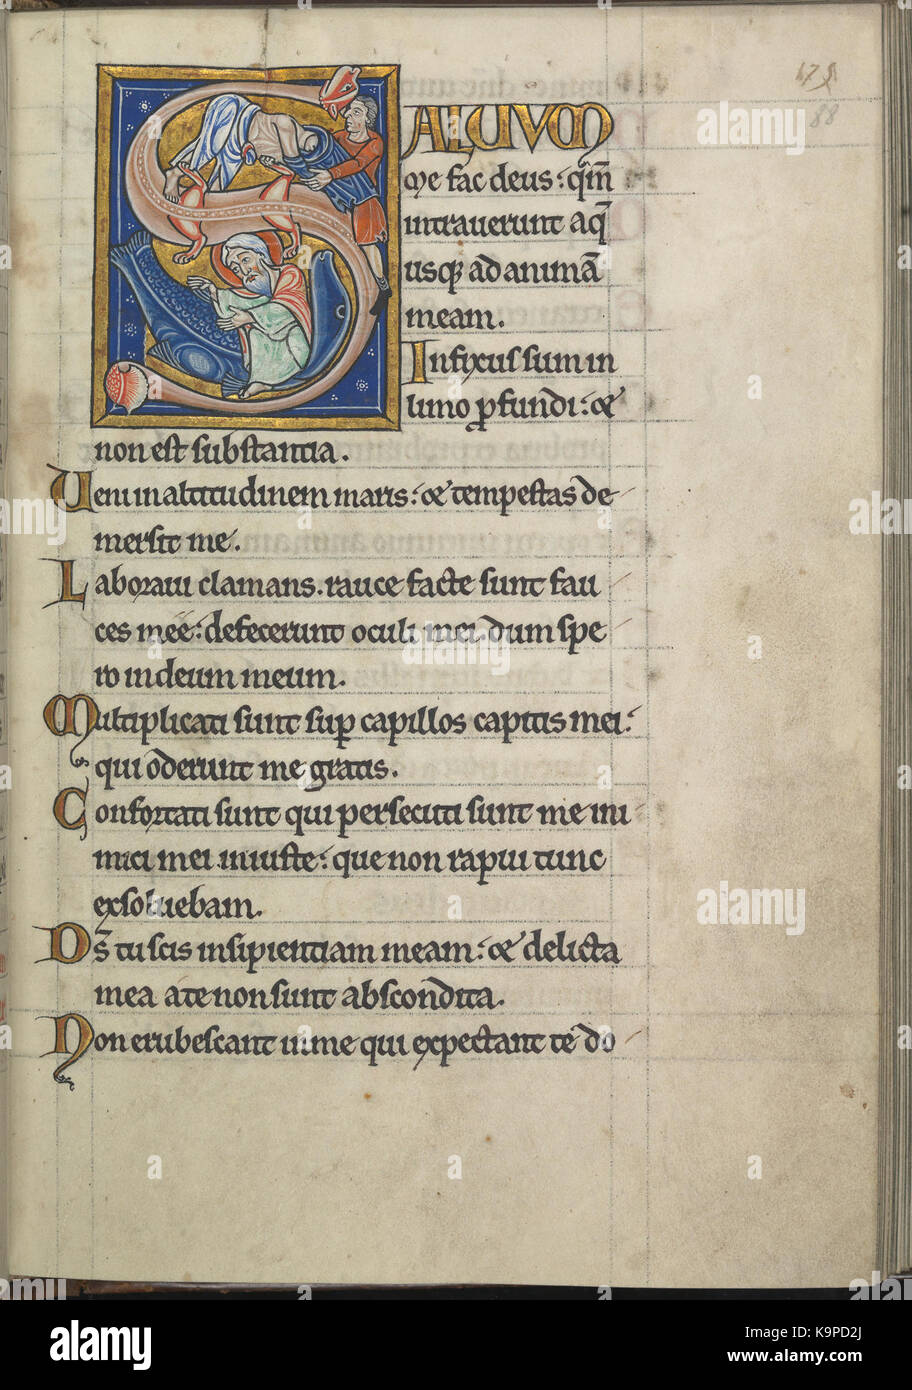 175
88
SALUUM
me fac deus: qm̄
intrauerunt aq̄
usq; ad animā
meam.
Infixus sum in
limo ꝓfundi: &
non est substantia.
Ueni in altitudinem maris: & tempestas de
mersit me.
Laboraui clamans. rauce facte sunt fau
ces meę: defecerunt oculi mei. dum spe
ro in deum meum.
Multiplicati sunt sup̄ capillos capitis mei:
qui oderunt me gratis.
Confortati sunt qui persecuti sunt me ini
mici mei iniuste: que non rapui tunc
exsoluebam.
Ds̄ tu scis insipientiam meam: & delicta
mea a te non sunt abscondita.
Non erubescant in me qui expectant te do
a alamy stock photo
alamy
Image ID: K9PD2J
www.alamy.com